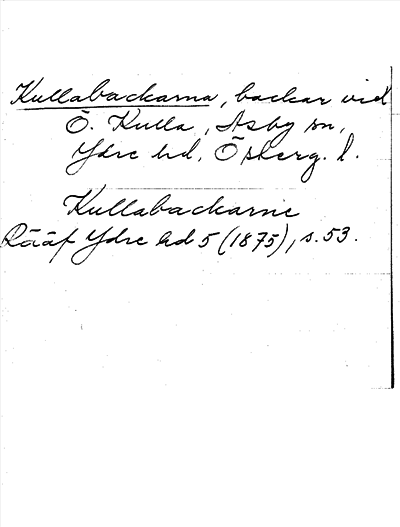 Kullabackarna, backar vid
Ö. Kulla, Asby sn,
Ydre hd, Östergt. l.
Kullabackarne
Rääf Ydre hd 5 (1875), s. 53.